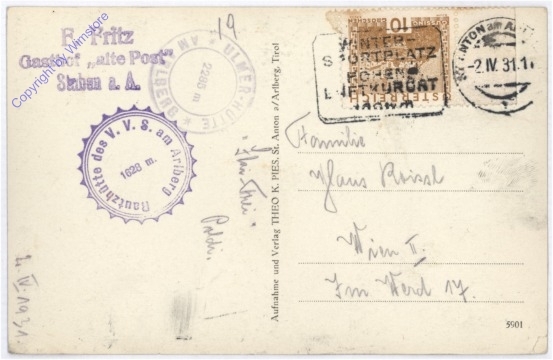 Copyright by Wirnstore
F. Fritz
Gasthof „alte Post"
Stuben a. A.
19
ULMER-HÜTTE
2285 m
AM ARLBERG
Rautzhütte des V. V. S. am Arlberg
1628 m.
Poldi.
2. IV. 1931.
Aufnahme und Verlag THEO K. PIES, St. Anton a/Arlberg, Tirol
10
ÖSTERREICH
WINTER-
SPORTPLATZ
HÖHEN-
LUFTKURORT
ST. ANTON am ARLBERG
-2.IV.31.1
Familie
Hans
Wien II.
Im Werd 17.
5901